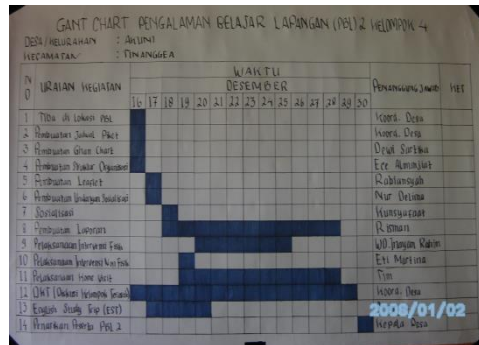 GANT CHART PENGALAMAN BELAJAR LAPANGAN (PBL) 2 KELOMPOK 4
DESA/KELURAHAN : AKUNI
KECAMATAN : TINANGGEA
NO URAIAN KEGIATAN WAKTU PENANGGUNG JAWAB KET
DESEMBER
16 17 18 19 20 21 22 23 24 25 26 27 28 29 30
1 Tiba di Lokasi PBL Koord. Desa
2 Pembuatan Jadwal Piket Koord. Desa
3 Pembuatan Ghan Chart Dewi Sartika
4 Pembuatan Struktur Organisasi Ece
5 Pembuatan Leaflet Rabliansyah
6 Pembuatan Undangan Sosialisasi Nur Delima
7 Sosialisasi
8 Pembuatan Laporan Risman
9 Pelaksanaan Intervensi Fisik WD. Rahim
10 Pelaksanaan Intervensi Non Fisik Eti Martina
11 Pelaksanaan Home Visit Tim
12 DKT (Diskusi Kelompok Terarah) Koord. Desa
13 English Study Trip (EST)
2008/01/02
14 Penarikan Peserta PBL 2 Kepala Desa